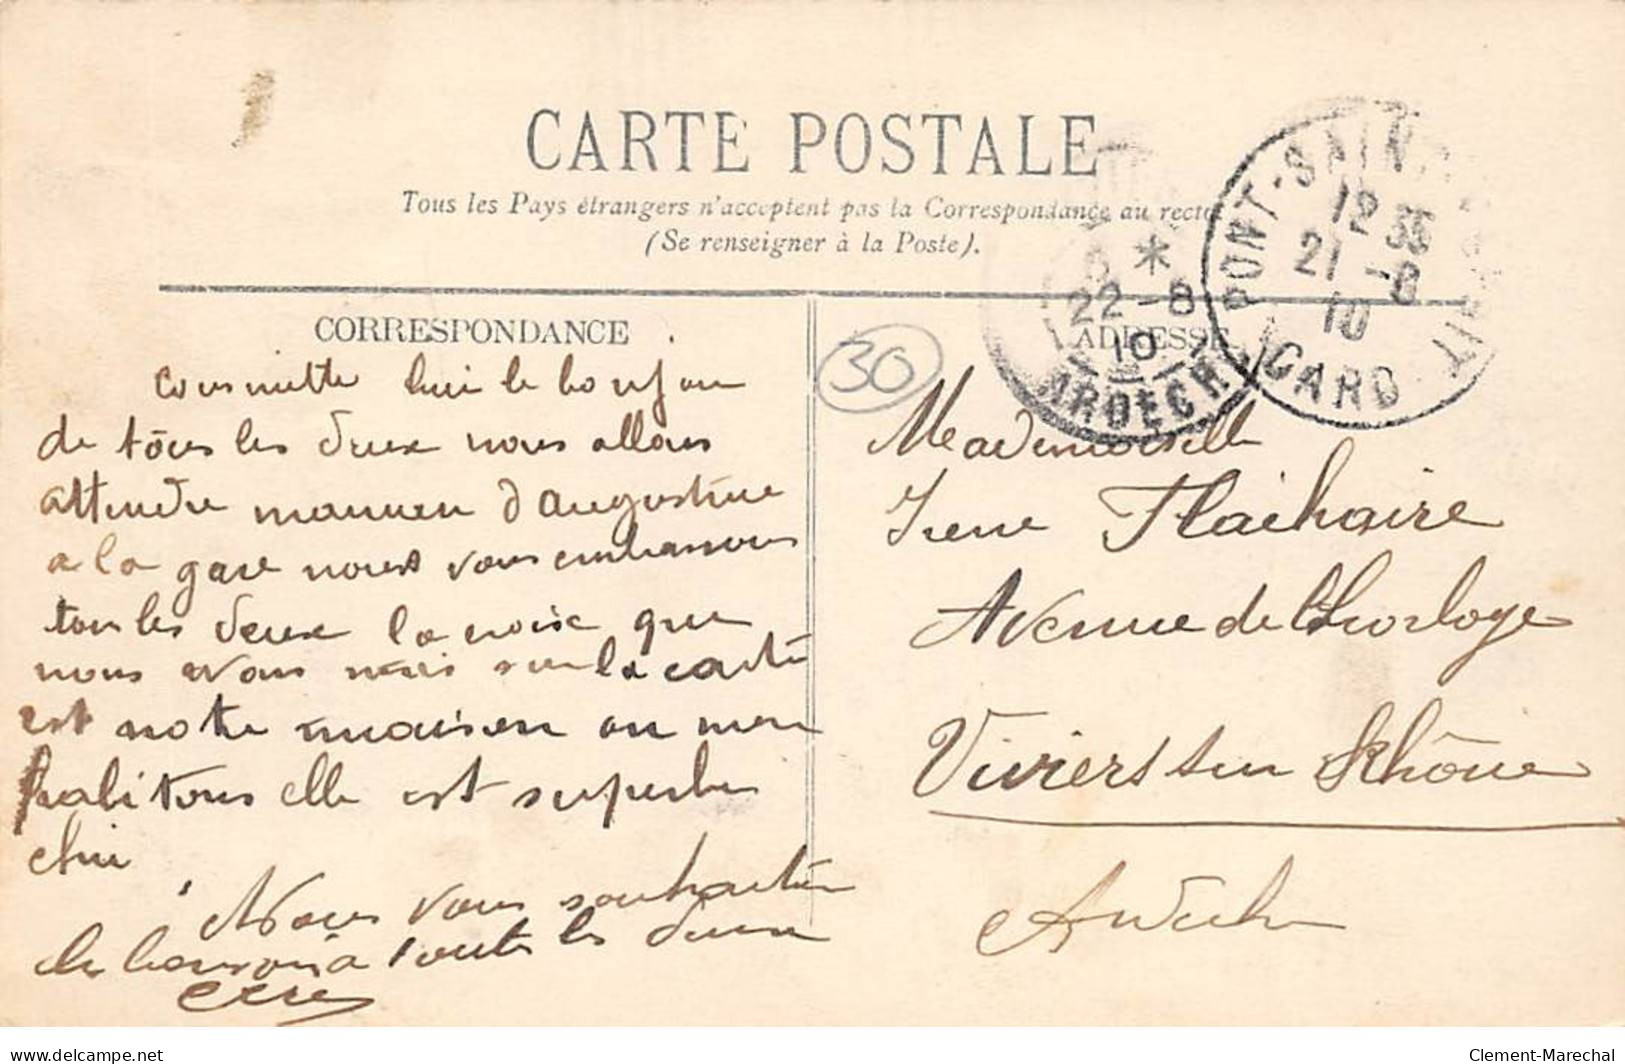 CARTE POSTALE
Tous les Pays étrangers n'acceptent pas la Correspondance au recto
(Se renseigner à la Poste).
PONT-SAIN
12 35
21 -8
10
GARD
22 -8
10
ARDECH
CORRESPONDANCE
ADRESSE
30
le bonjour
de tous les deux nous allons
attendre maman d'augustine
a la gare nous vous embrassons
tous les deux la croix que
nous vous sur la carte
est notre maison ou nous
habitons elle est superbe
Nous vous souhaiton
le bonsoir a toute les deux
Mademoiselle
Irene Flaihaire
Avenue de l'horloge
Viviers sur Rhône
Ardeche
delcampe.net
Clement-Marechal